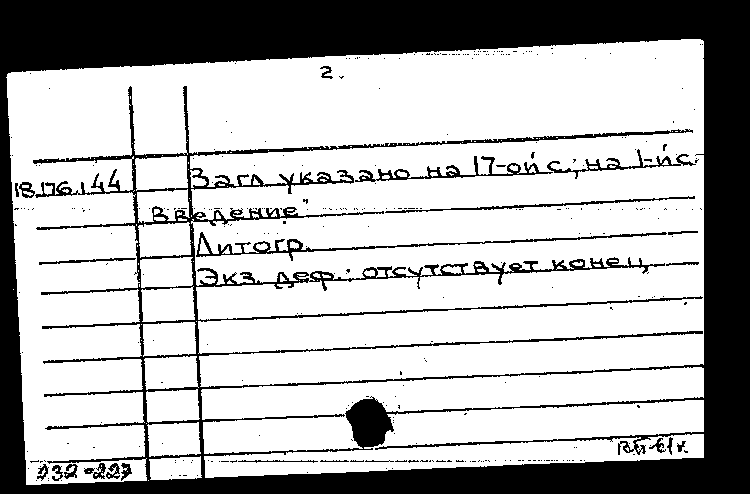 2.
18.176.1.44 Загл указано на 17-ой с.; на 1-й с.
"Введение"
Литогр.
Экз. деф.: отсутствует конец
ВБ-61к